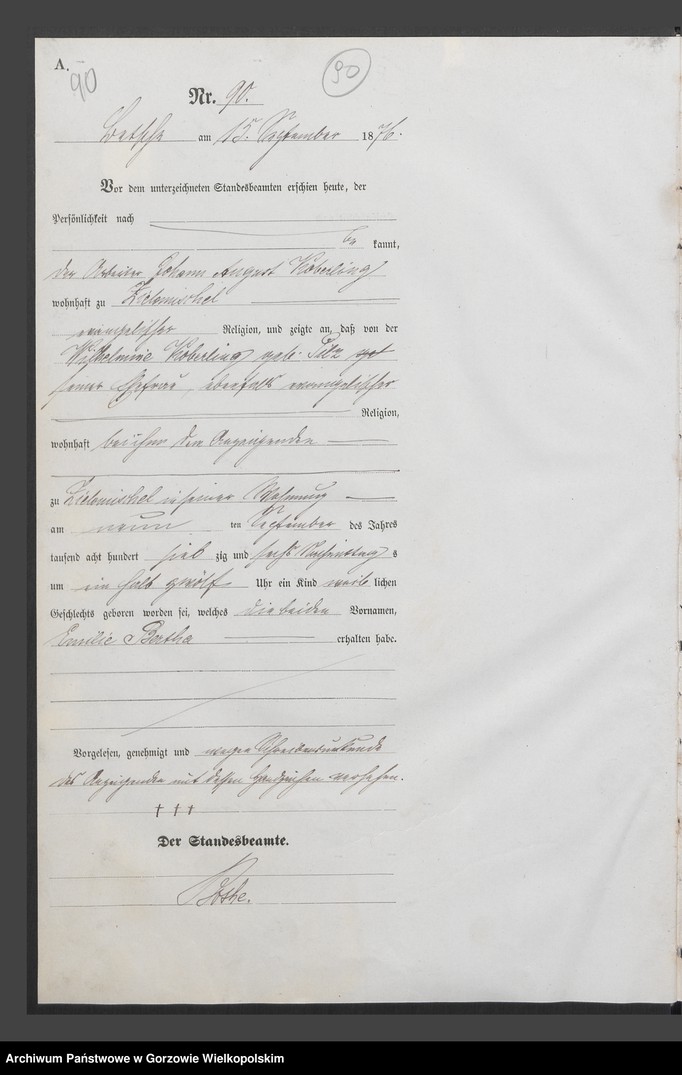 A.
90
90
Nr. 90.
Betsche am 15. September 1876.
Vor dem unterzeichneten Standesbeamten erschien heute, der
Persönlichkeit nach
be kannt,
der Arbeiter Johann August Köberling
wohnhaft zu Zielomischel
evangelischer Religion, und zeigte an, daß von der
Wilhelmine Köberling geb. Pilz
seiner Ehefrau, ebenfalls evangelischer
Religion,
wohnhaft bei ihm dem Anzeigenden
zu Zielomischel in seiner Wohnung
am neun ten September des Jahres
tausend acht hundert sieb zig und sechs Nachmittags
um ein halb zwölf Uhr ein Kind weib lichen
Geschlechts geboren worden sei, welches die beiden Vornamen,
Emilie Bertha erhalten habe.
Vorgelesen, genehmigt und wegen Schreibensunkunde
des Anzeigenden mit dessen Handzeichen versehen.
† † †
Der Standesbeamte.
Archiwum Państwowe w Gorzowie Wielkopolskim